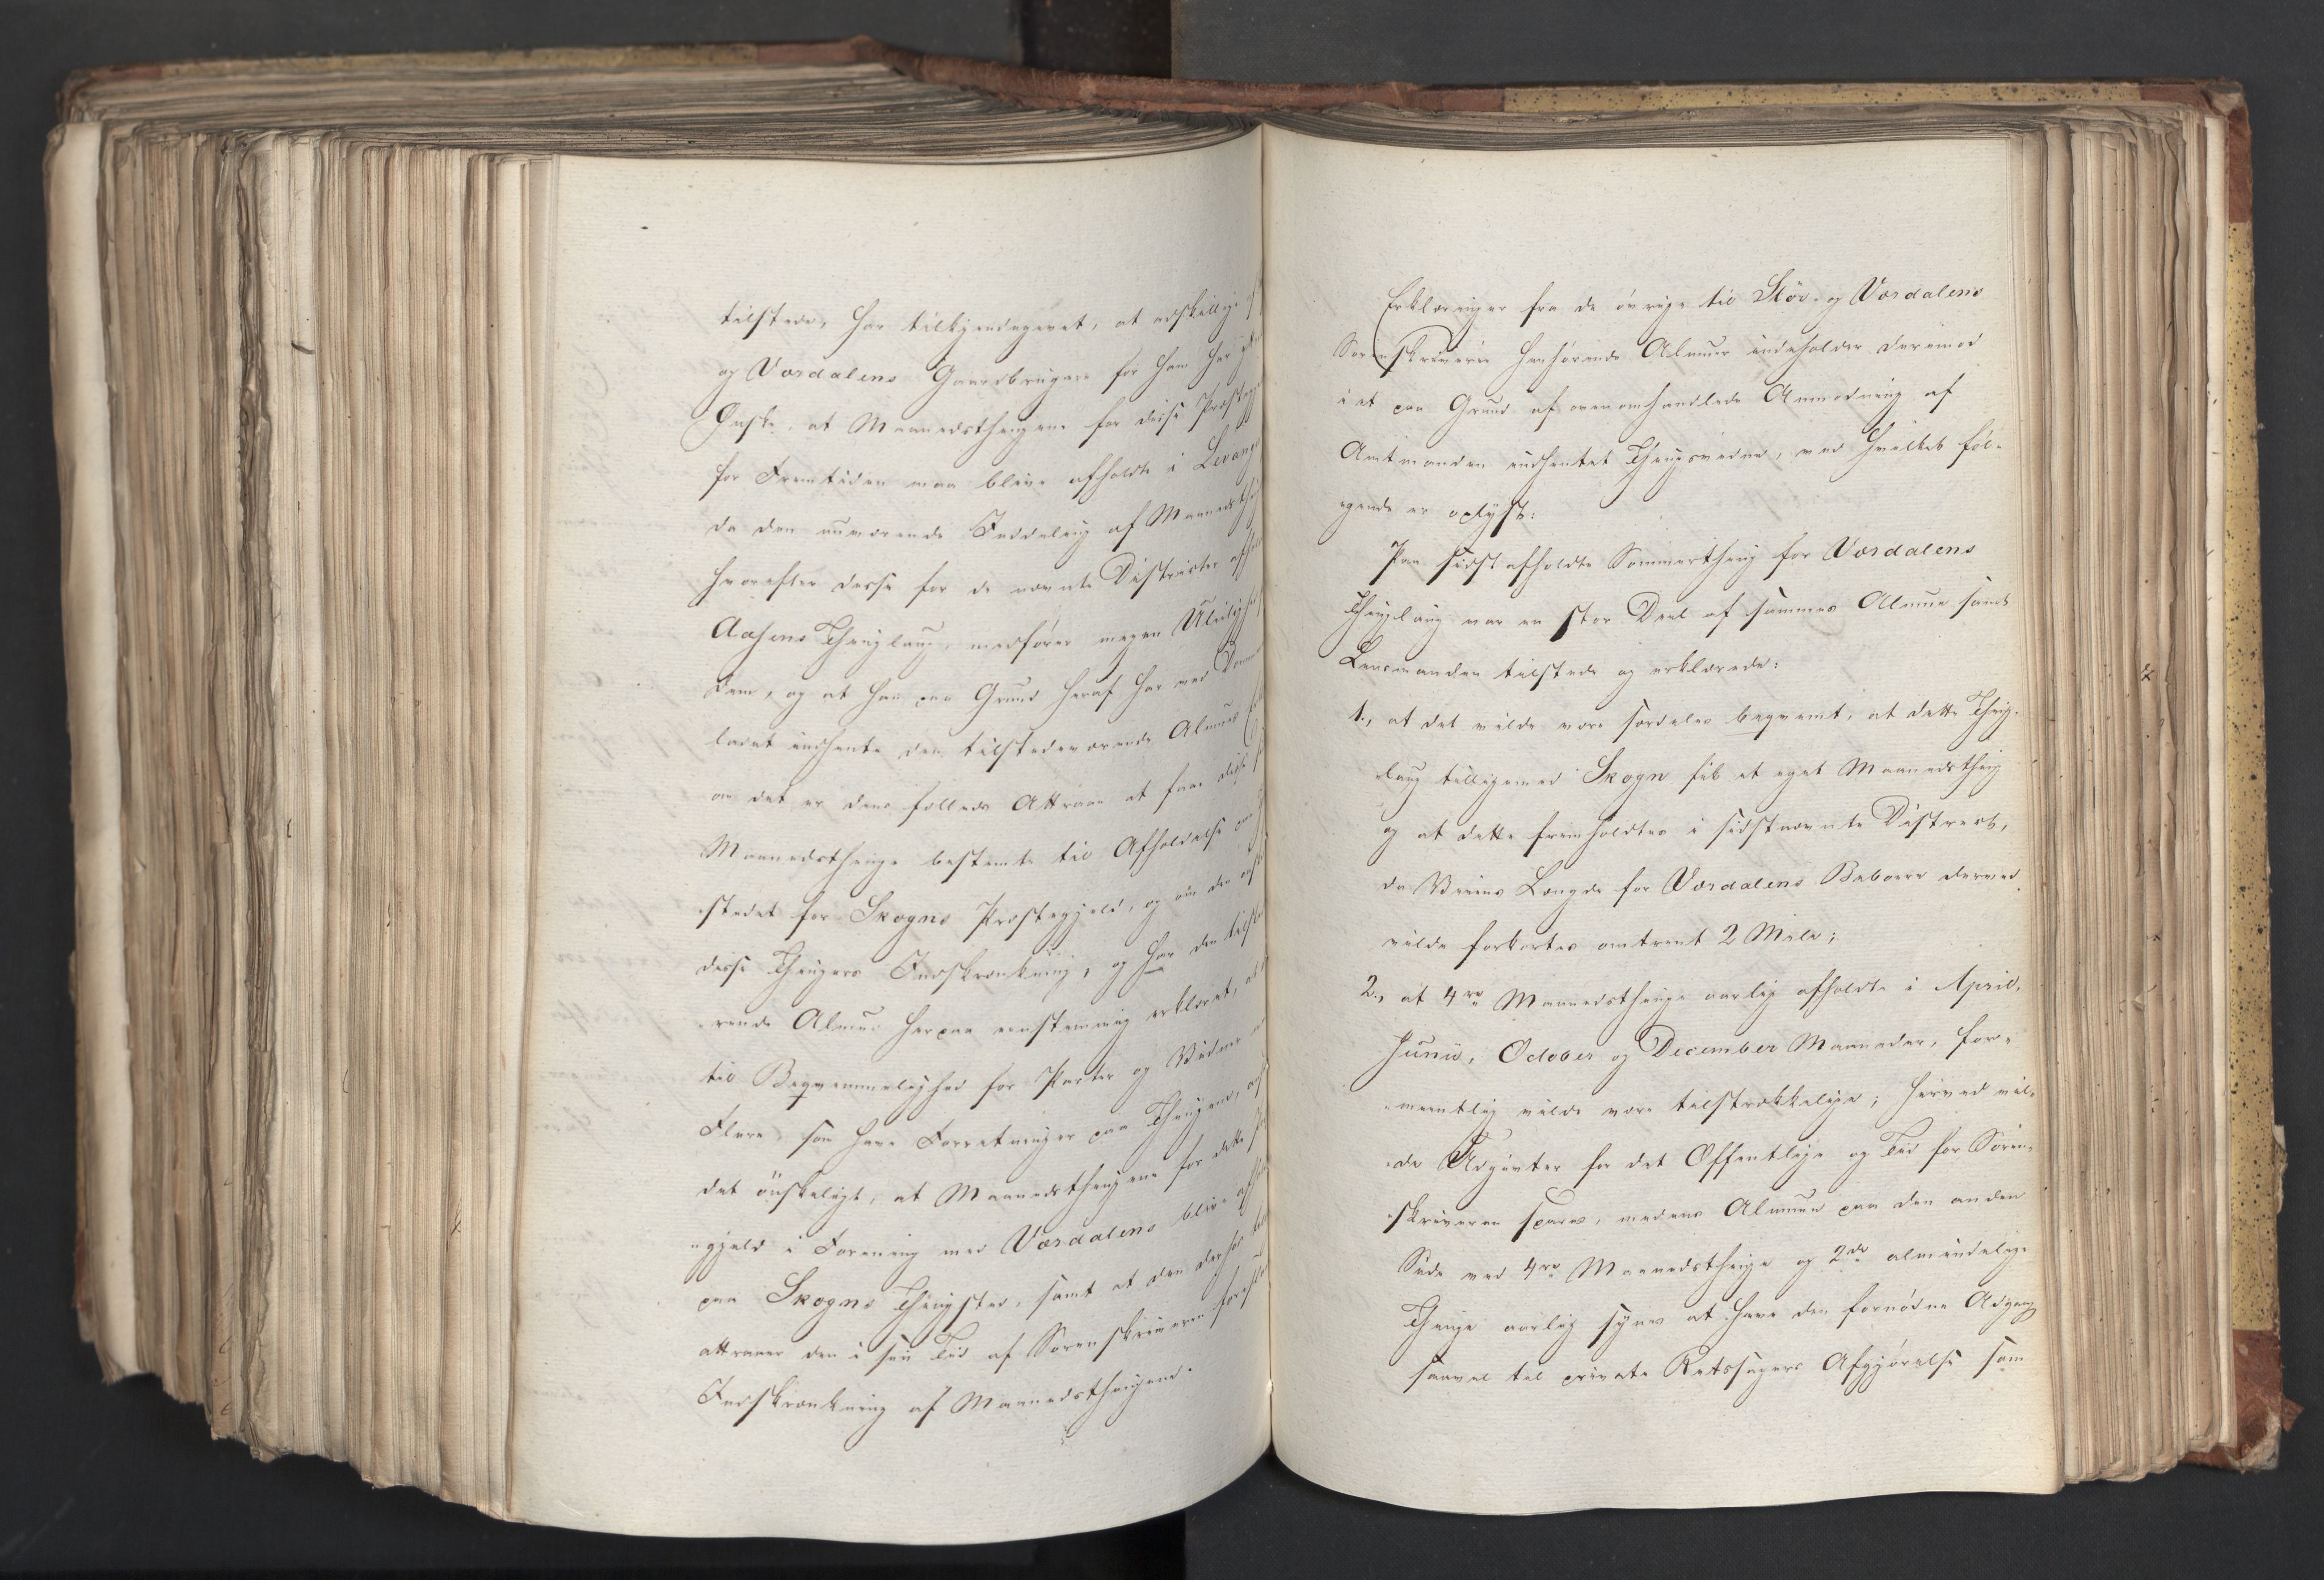 tilstede, har tilkjendegivet, at adskillige
og Værdalens Gaardbrugere for ham har
Ønske, at Maanedsthingene for disse Præsteg
for Fremtiden maa blive afholdte i Levang
da den nuværende Inddeling af Maanedsth
hvorefter disse for de nævnte Districter afh
Aasens Thinglaug, medfører megen Uleilighed
dem, og at han paa Grund heraf har ved
ladet indhente den tilstedeværende Almues
om det er dens fælleds Attraae at faae disse
Maanedsthinge bestemte til Afholdelse paa
stedet for Skogns Præstegjeld, og om den
disse Thinges Indskrænkning, og har den tilste-
rende Almue herpaa eenstemmig erklæret, at
til Beqvemmelighed for Parter og Vidner
Flere, som have Forretninger paa Thingene,
det ønskeligt, at Maanedsthingene for dette
-gjeld i Forening med Værdalens blive afh
paa Skogns Thingsted, samt at den derhos
attraaer den i sin Tid af Sorenskriveren
Indskrænkning af Maanedsthingene.
Erklæringer fra de øvrige til Stør- og Værdalens
Sorenskriverie henhørende Almuer indeholdes derimod
i et paa Grund af ovenomhandlede Anmodning af
Amtmanden indhentet Thingsvidne, ved hvilket føl-
gende er oplyst:
Paa sidst afholdte Sommerthing for Værdalens
Thinglaug var en stor Deel af sammes Almue samt
Lensmanden tilstede og erklærede:
1., at det vilde være særdeles beqvemt, at dette Thing-
laug tilligemed Skogn fik et eget Maanedsthing
og at dette fremholdtes i sidstnævnte District,
da Veiens Længde for Værdalens Beboere derved
vilde forkortes omtrent 2 Mile;
2., at 4re Maanedsthinge aarlig afholdte i April,
Junii, October og December Maaneder, for-
-meentlig vilde være tilstrækkelige; herved vil-
-de Udgivter for det Offentlige og Tid for Soren-
-skriveren spares, medens Almuen paa den anden
Side ved 4re Maanedsthinge og 2de almindelige
Thinge aarlig synes at have den fornødne Adgang
saavel til private Retssagers Afgjørelse som